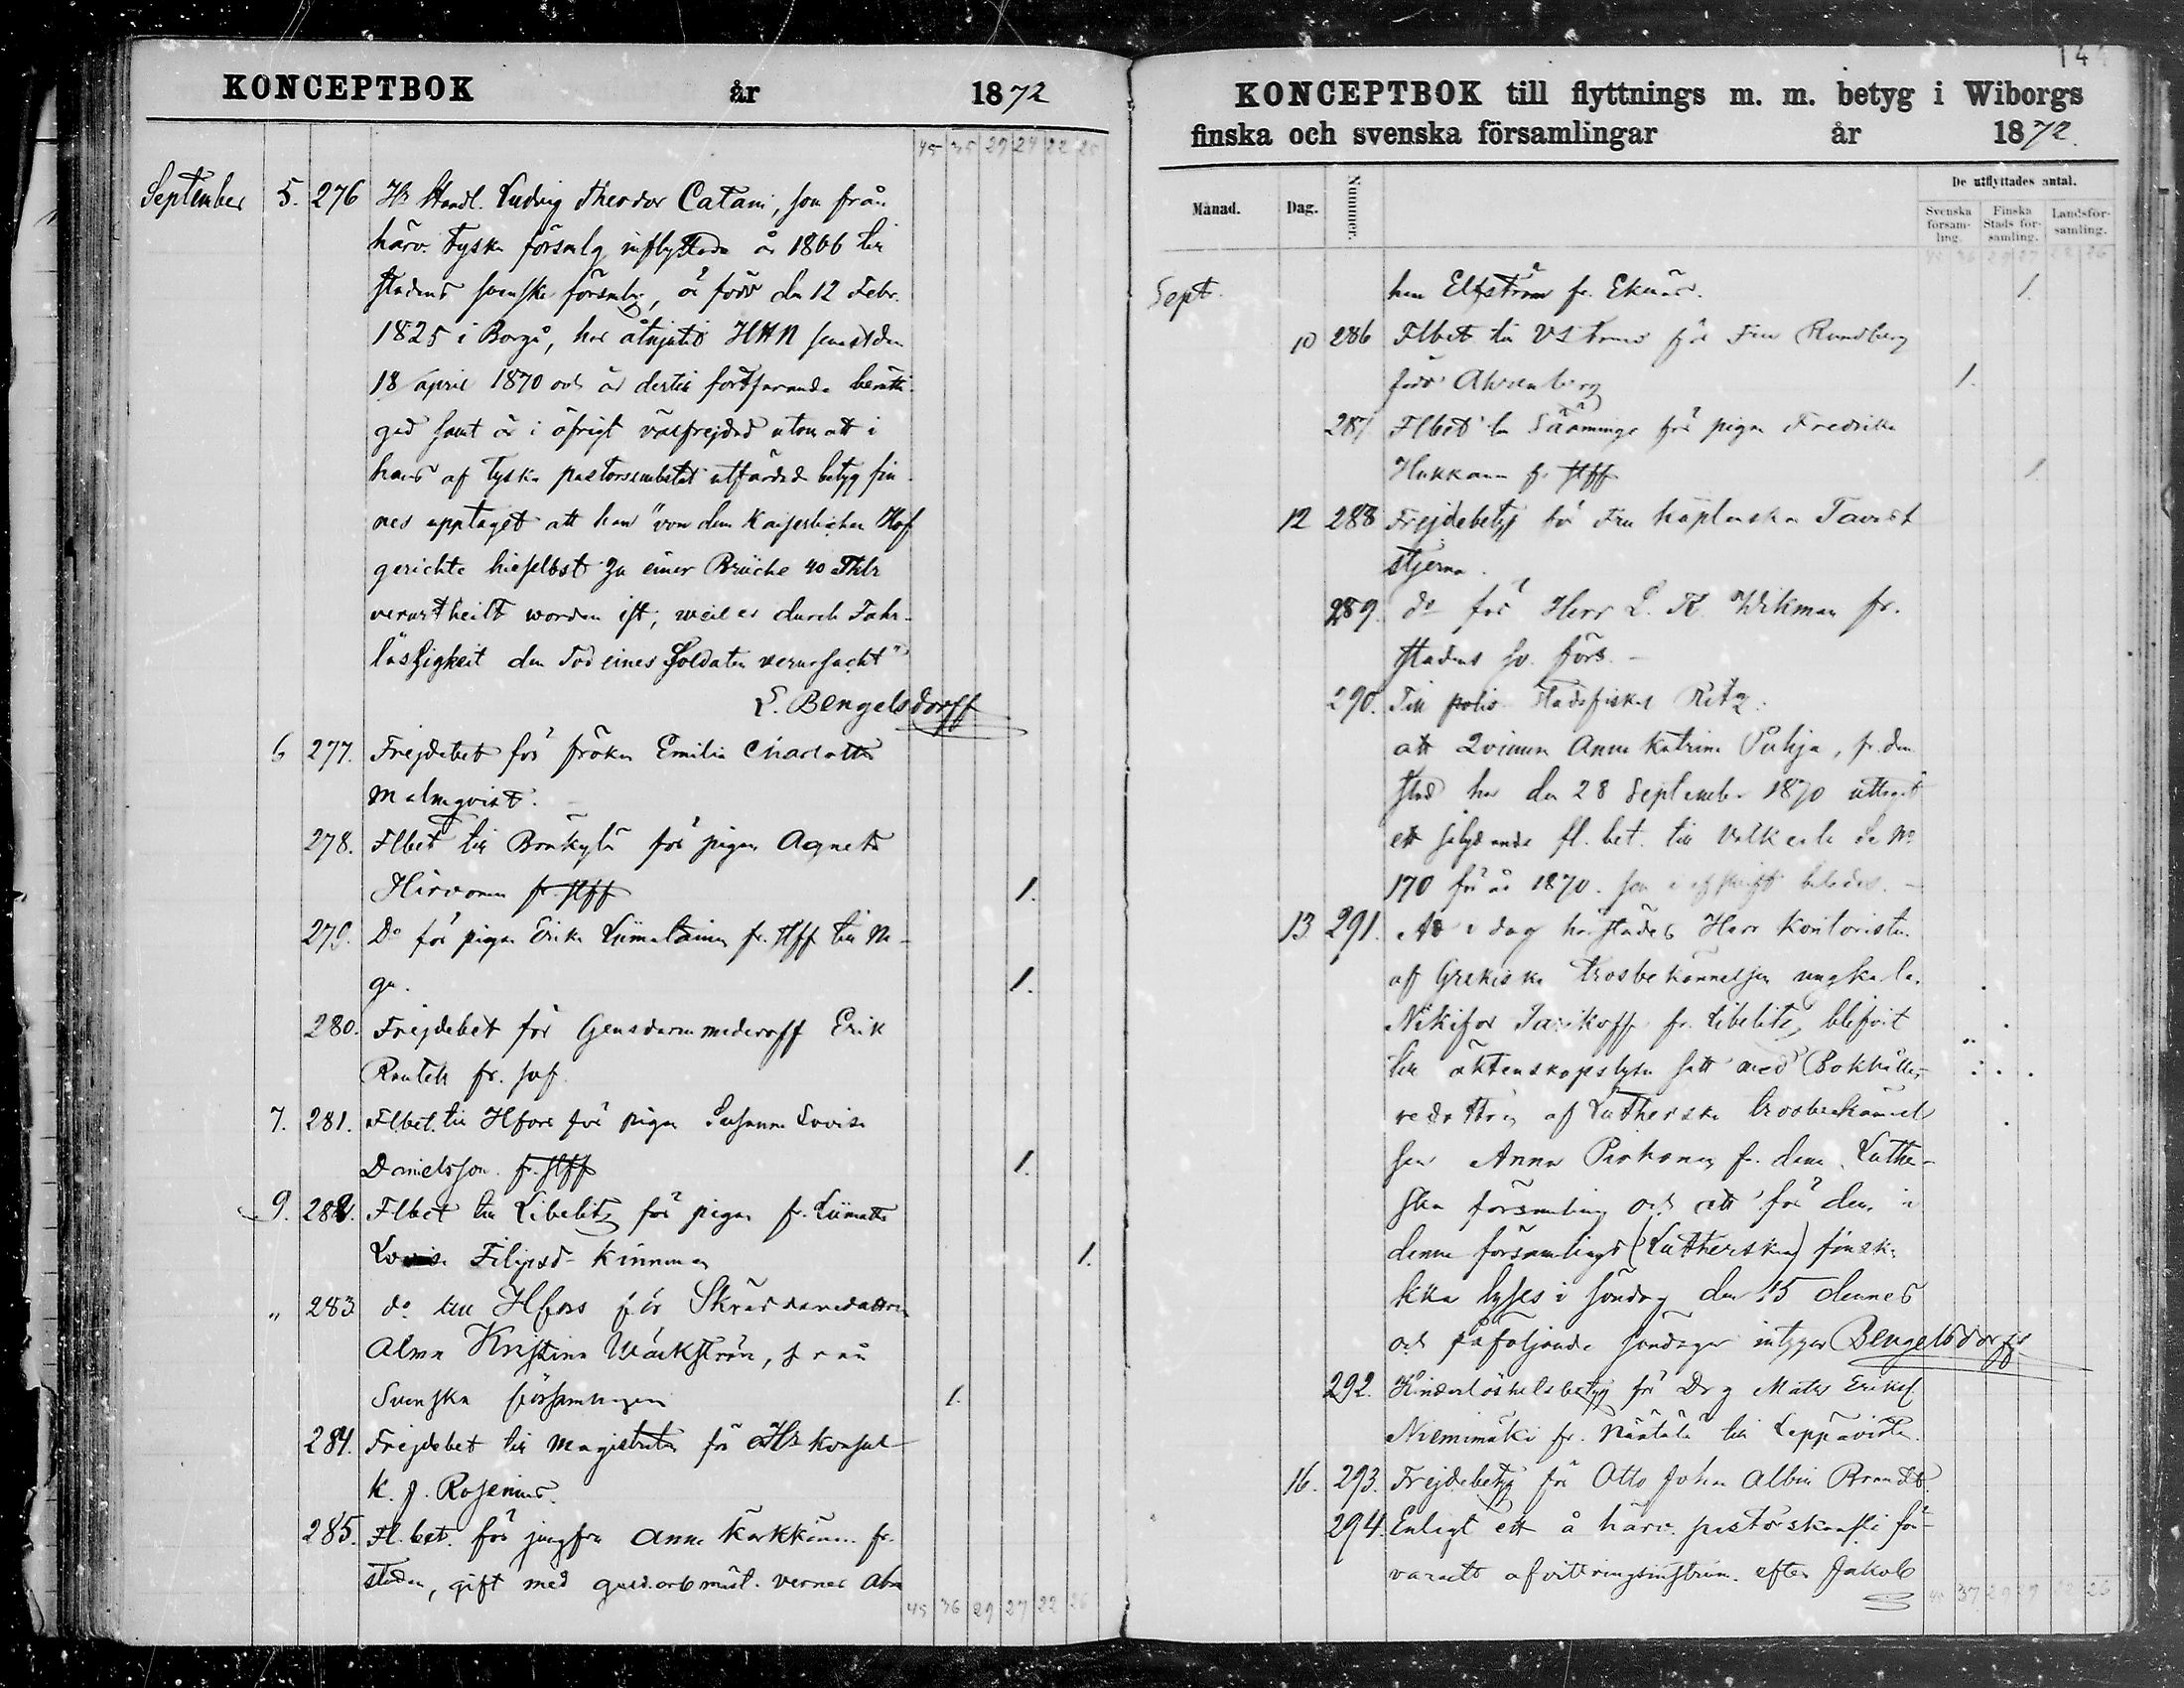 KONCEPTBOK år 1872
45 35 29 24 22 25
September 5. 276 Hr Handl. Ludvig Theodor Catani, som från
härv. Tyska försmlg inflyttade år 1866 till
stadens svenska försmlg, är född den 12 Febr.
1825 i Borgå, har åtnjutit HHN senast den
18 april 1870 och är dertill fortfarande berätti-
gad samt är i öfrigt välfrejdad utom att i
hans af Tyska pastorsembetet utfärdade betyg fin-
nes upptaget att han "von dem Kaiserlichen Hof
gerichte hieselbst zu einer Brüche 40 Thlr
verurtheilt worden ist, weil er durch Fahr-
lässigkeit den Tod eines Soldaten verursacht"
L. Bengelsdorff
6 277. Frejdebet för fröken Emilia Charlotta
Malmqvist.
278. Flbet till Bräkylä för pigan Agneta
Hirvonen fr. Hff 1.
279. Do för pigan Erika Liimatainen fr. Hff till M-
ga. 1.
280. Frejdebet för Gensdarmunderoff Erik
Rautell fr. svf.
7. 281. Flbet. till Hfors för pigan Susanna Lovisa
Danielsson. fr. Hff 1.
9. 282. Flbet till Libelitz för pigan fr. Liimatta
Lovisa Filipsd. Kinnunen 1.
" 283 do till Hfors för Skräddaredottren
Alma Kristina Wäckström, från
Svenska församlingen 1.
284. Frejdebet till Magistraten för Hr Konsul
K. J. Rosenius.
285. Fl. bet. för jungfru Anna Karkkinen fr.
staden, gift med guldarb.mäst. Verner Abra
45 36 29 27 22 26
144
KONCEPTBOK till flyttnings m. m. betyg i Wiborgs
finska och svenska församlingar år 1872.
Månad. Dag. Nummer. De utflyttades antal.
Svenska församling. Finska Stads församling. Landsförsamling.
Sept. ham Elfström fr. Eknäs. 1.
10 286 Flbet till för Fru Rundberg
född Ahrenberg 1.
287. Flbet till Sääminge för pigan Fredrika
Hukkanen fr. Hff 1.
12 288 Frejdebetyg för Fru Kaptenskan Tavast
stjerna.
289. do för Herr L. R. Wikman fr.
stadens sv. förs.
290. Till polis Stadsfiskal Ritz.
att Qvinnan Anna Katrina Pohja, fr. den
stad har den 28 September 1870 uttagit
ett sålydande fl. bet. till Valkeala No
170 för år 1870. som i afskrift
13. 291. Att i dag härstädes Herr Kontoristen
af Grekiska Trosbekännelsen ungkarlen
Nikifor fr. Libelitz, blifvit
till äktenskapslysn satt med Bokhålla-
redottren af Lutherska trosbekännel
sen Anna Pirhonen fr. denna Luthe-
ska församling och att för den i
denna församlings (Lutherska) finska
kka lyses i söndag den 15 dennes
och påföljande söndagar intygar Bengelsdorff
292. Hinderlöshetsbetyg för Drg Mats Eriks.
Niemimäki fr. till Leppävirta.
16. 293. Frejdebetyg för Otto Johan Albin Brandt.
294. Enligt ett å härv. pastorskansli för-
varadt afvittringsinstrum. efter Jakob